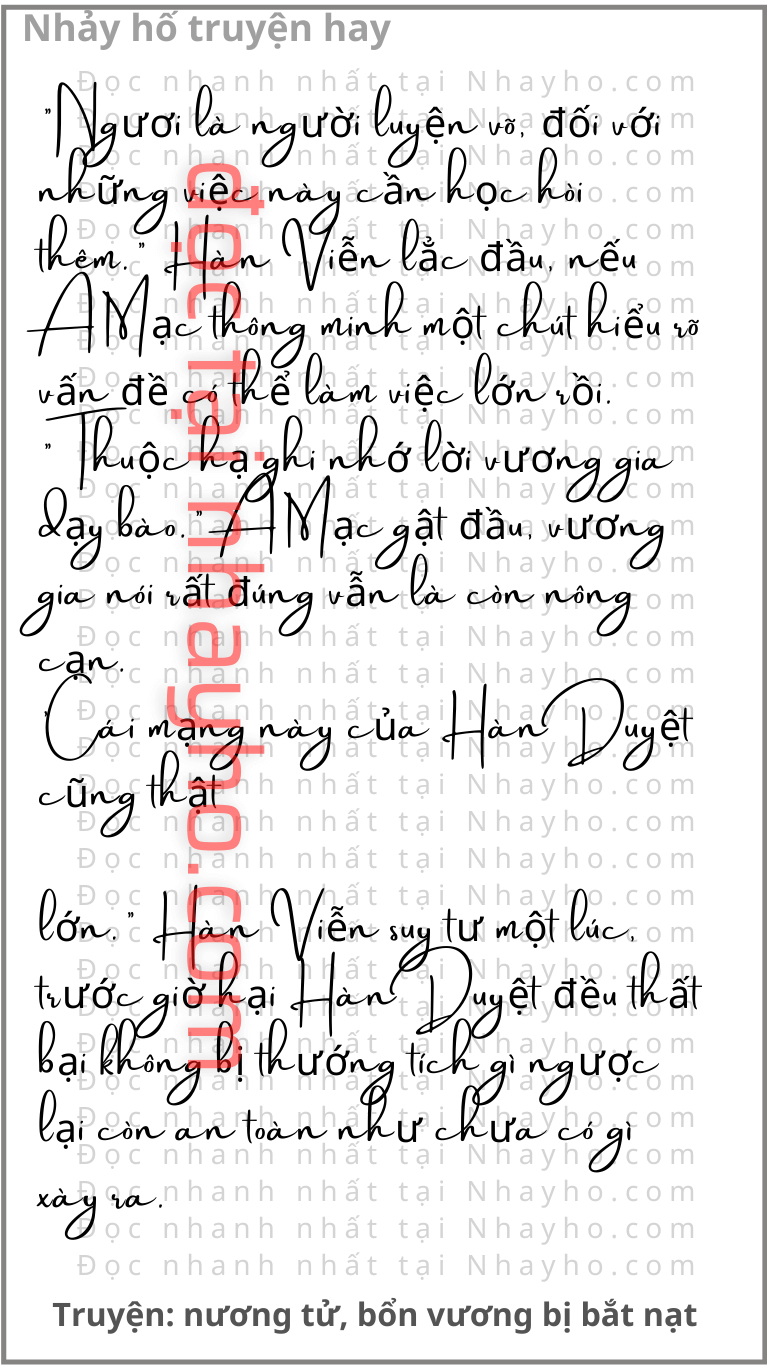 Nhảy hố truyện hay
"Ngươi là người luyện võ, đối với
những việc này cần học hỏi
thêm." Hàn Viễn lắc đầu, nếu
A Mạc thông minh một chút hiểu rõ
vấn đề có thể làm việc lớn rồi.
"Thuộc hạ ghi nhớ lời vương gia
dạy bảo." A Mạc gật đầu, vương
gia nói rất đúng vẫn là còn nông
cạn.
"Cái mạng này của Hàn Duyệt
cũng thật
lớn." Hàn Viễn suy tư một lúc,
trước giờ hại Hàn Duyệt đều thất
bại không bị thướng tích gì ngược
lại còn an toàn như chưa có gì
xảy ra.
đọc tại nhayho.com
Đọc nhanh nhất tại Nhayho.com
Truyện: nương tử, bổn vương bị bắt nạt